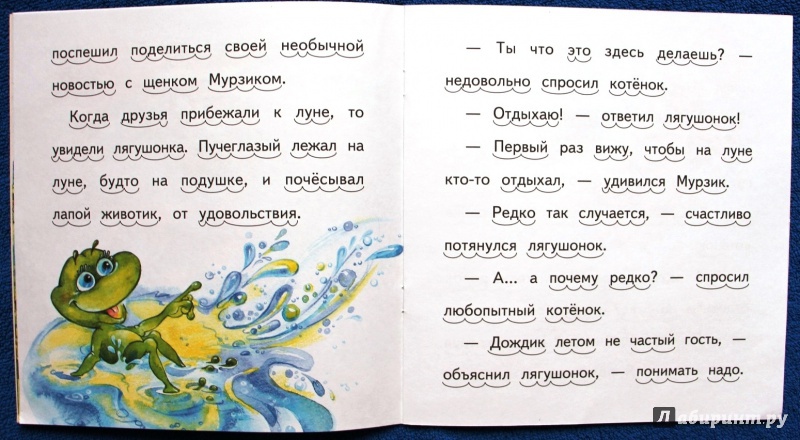 поспешил поделиться своей необычной
новостью с щенком Мурзиком.
Когда друзья прибежали к луне, то
увидели лягушонка. Пучеглазый лежал на
луне, будто на подушке, и почёсывал
лапой животик, от удовольствия.
— Ты что это здесь делаешь? —
недовольно спросил котёнок.
— Отдыхаю! — ответил лягушонок!
— Первый раз вижу, чтобы на луне
кто-то отдыхал, — удивился Мурзик.
— Редко так случается, — счастливо
потянулся лягушонок.
— А... а почему редко? — спросил
любопытный котёнок.
— Дождик летом не частый гость, —
объяснил лягушонок, — понимать надо.
Лабиринт.ру